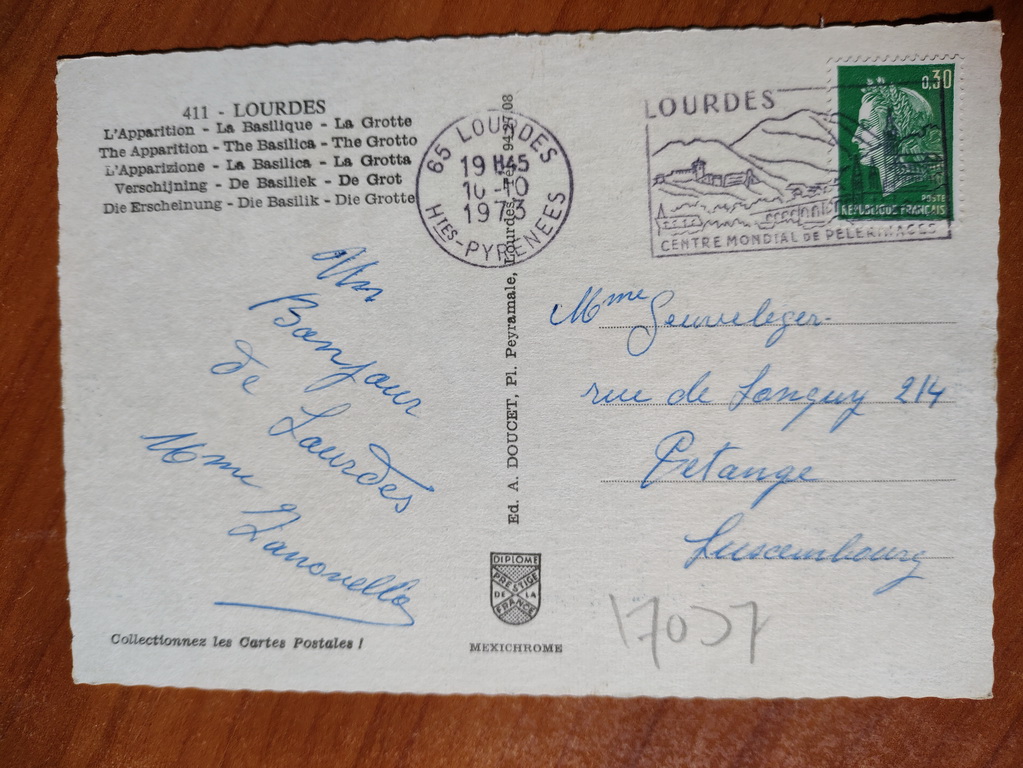 411 - LOURDES
L'Apparition - La Basilique - La Grotte
The Apparition - The Basilica - The Grotto
L'Apparizione - La Basilica - La Grotta
Verschijning - De Basiliek - De Grot
Die Erscheinung - Die Basilik - Die Grotte
65 LOURDES
19 H45
10-10
1973
HTES-PYRENEES
LOURDES
CENTRE MONDIAL DE PELERINAGES
0,30
POSTE
REPUBLIQUE FRANCAISE
Un
Bonjour
de Lourdes
Mme Zanonella
Ed. A. DOUCET, Pl. Peyramale, Lourdes
Mme
rue de Longwy 214
Petange
Luxembourg
DIPLOME
PRESTIGE
DE LA
FRANCE
MEXICHROME
Collectionnez les Cartes Postales !